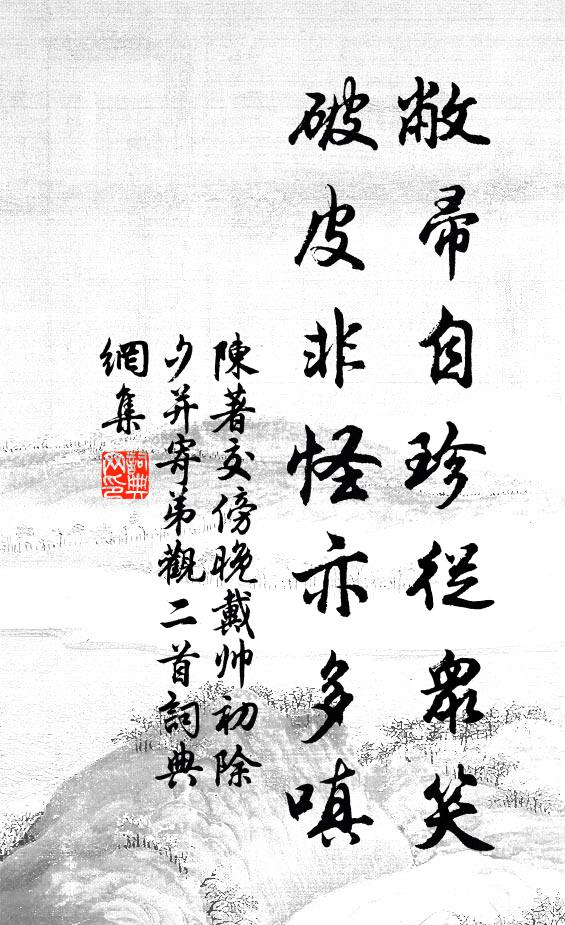 敝帚自珍從眾笑
破皮非怪亦多嗔
陳著交傍晚戴帅初除
夕并寄弟觀二首詞典
網集
詞典網印